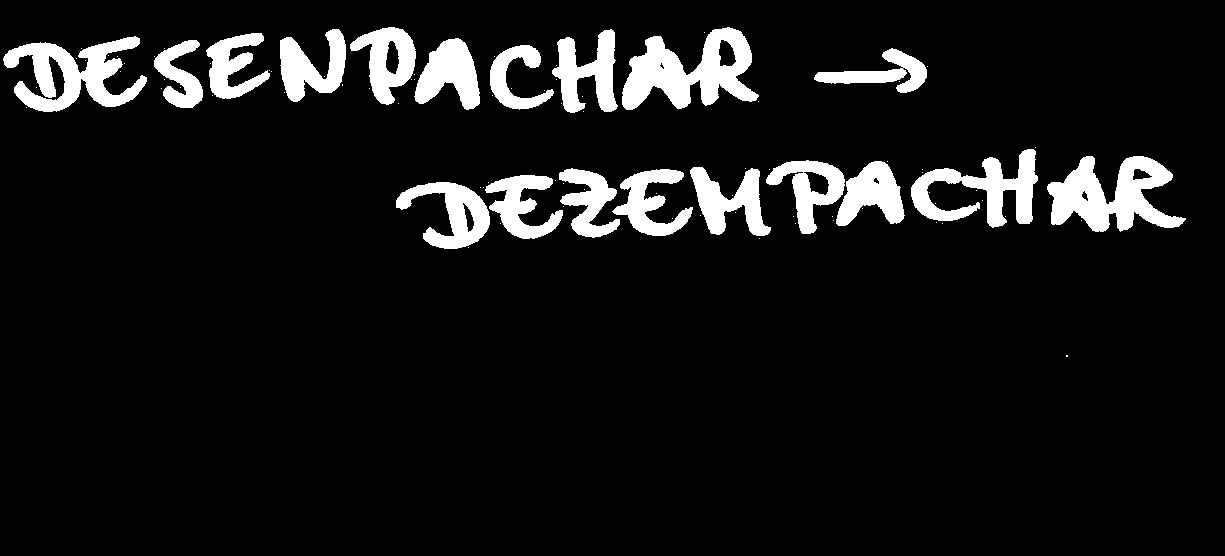 DESENPACHAR →
DEZEMPACHAR